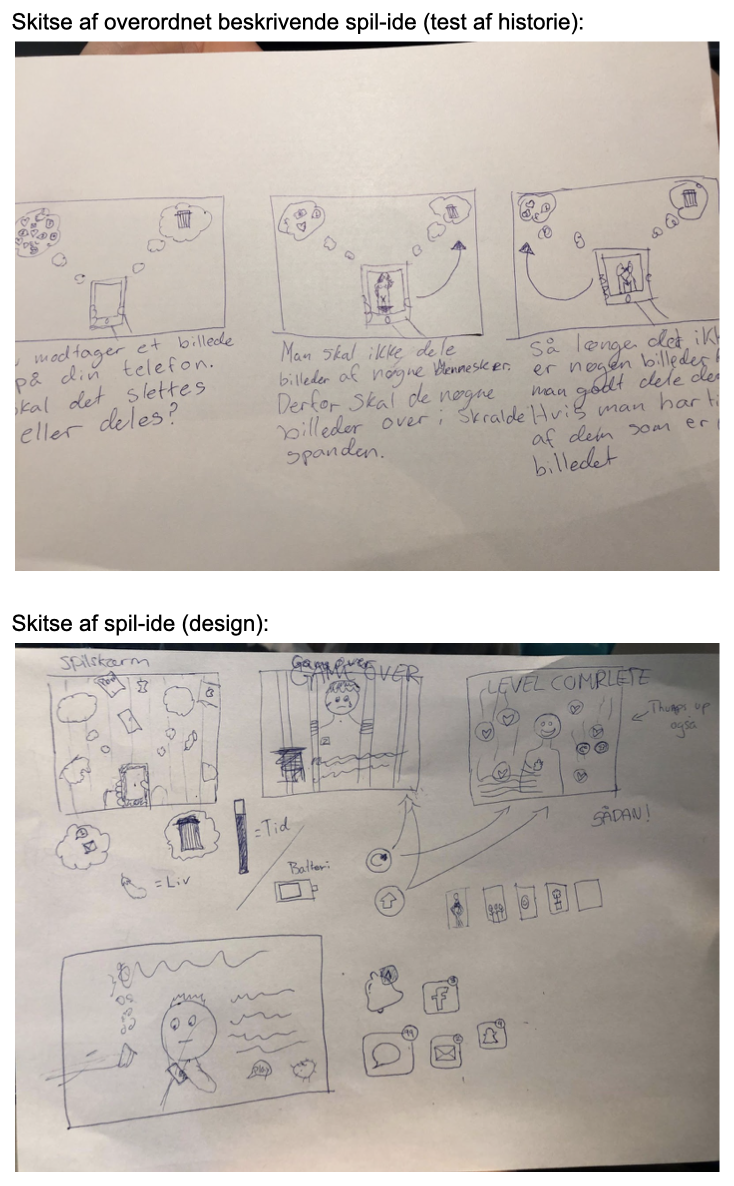 Skitse af overordnet beskrivende spil-ide (test af historie):
modtager et billede
på din telefon.
skal det slettes
eller deles?
Man skal ikke dele
billeder af nøgne Mennesker.
Derfor skal de nøgne
billeder over i skralde
spanden.
Så længe det ikk
er nøgen billeder
man godt dele de
Hvis man har ti
af dem som er
billedet
Skitse af spil-ide (design):
Spilskærm
GAME OVER
LEVEL COMPLETE
Thumps up
også
SÅDAN!
= Tid
= Liv
Batteri
play